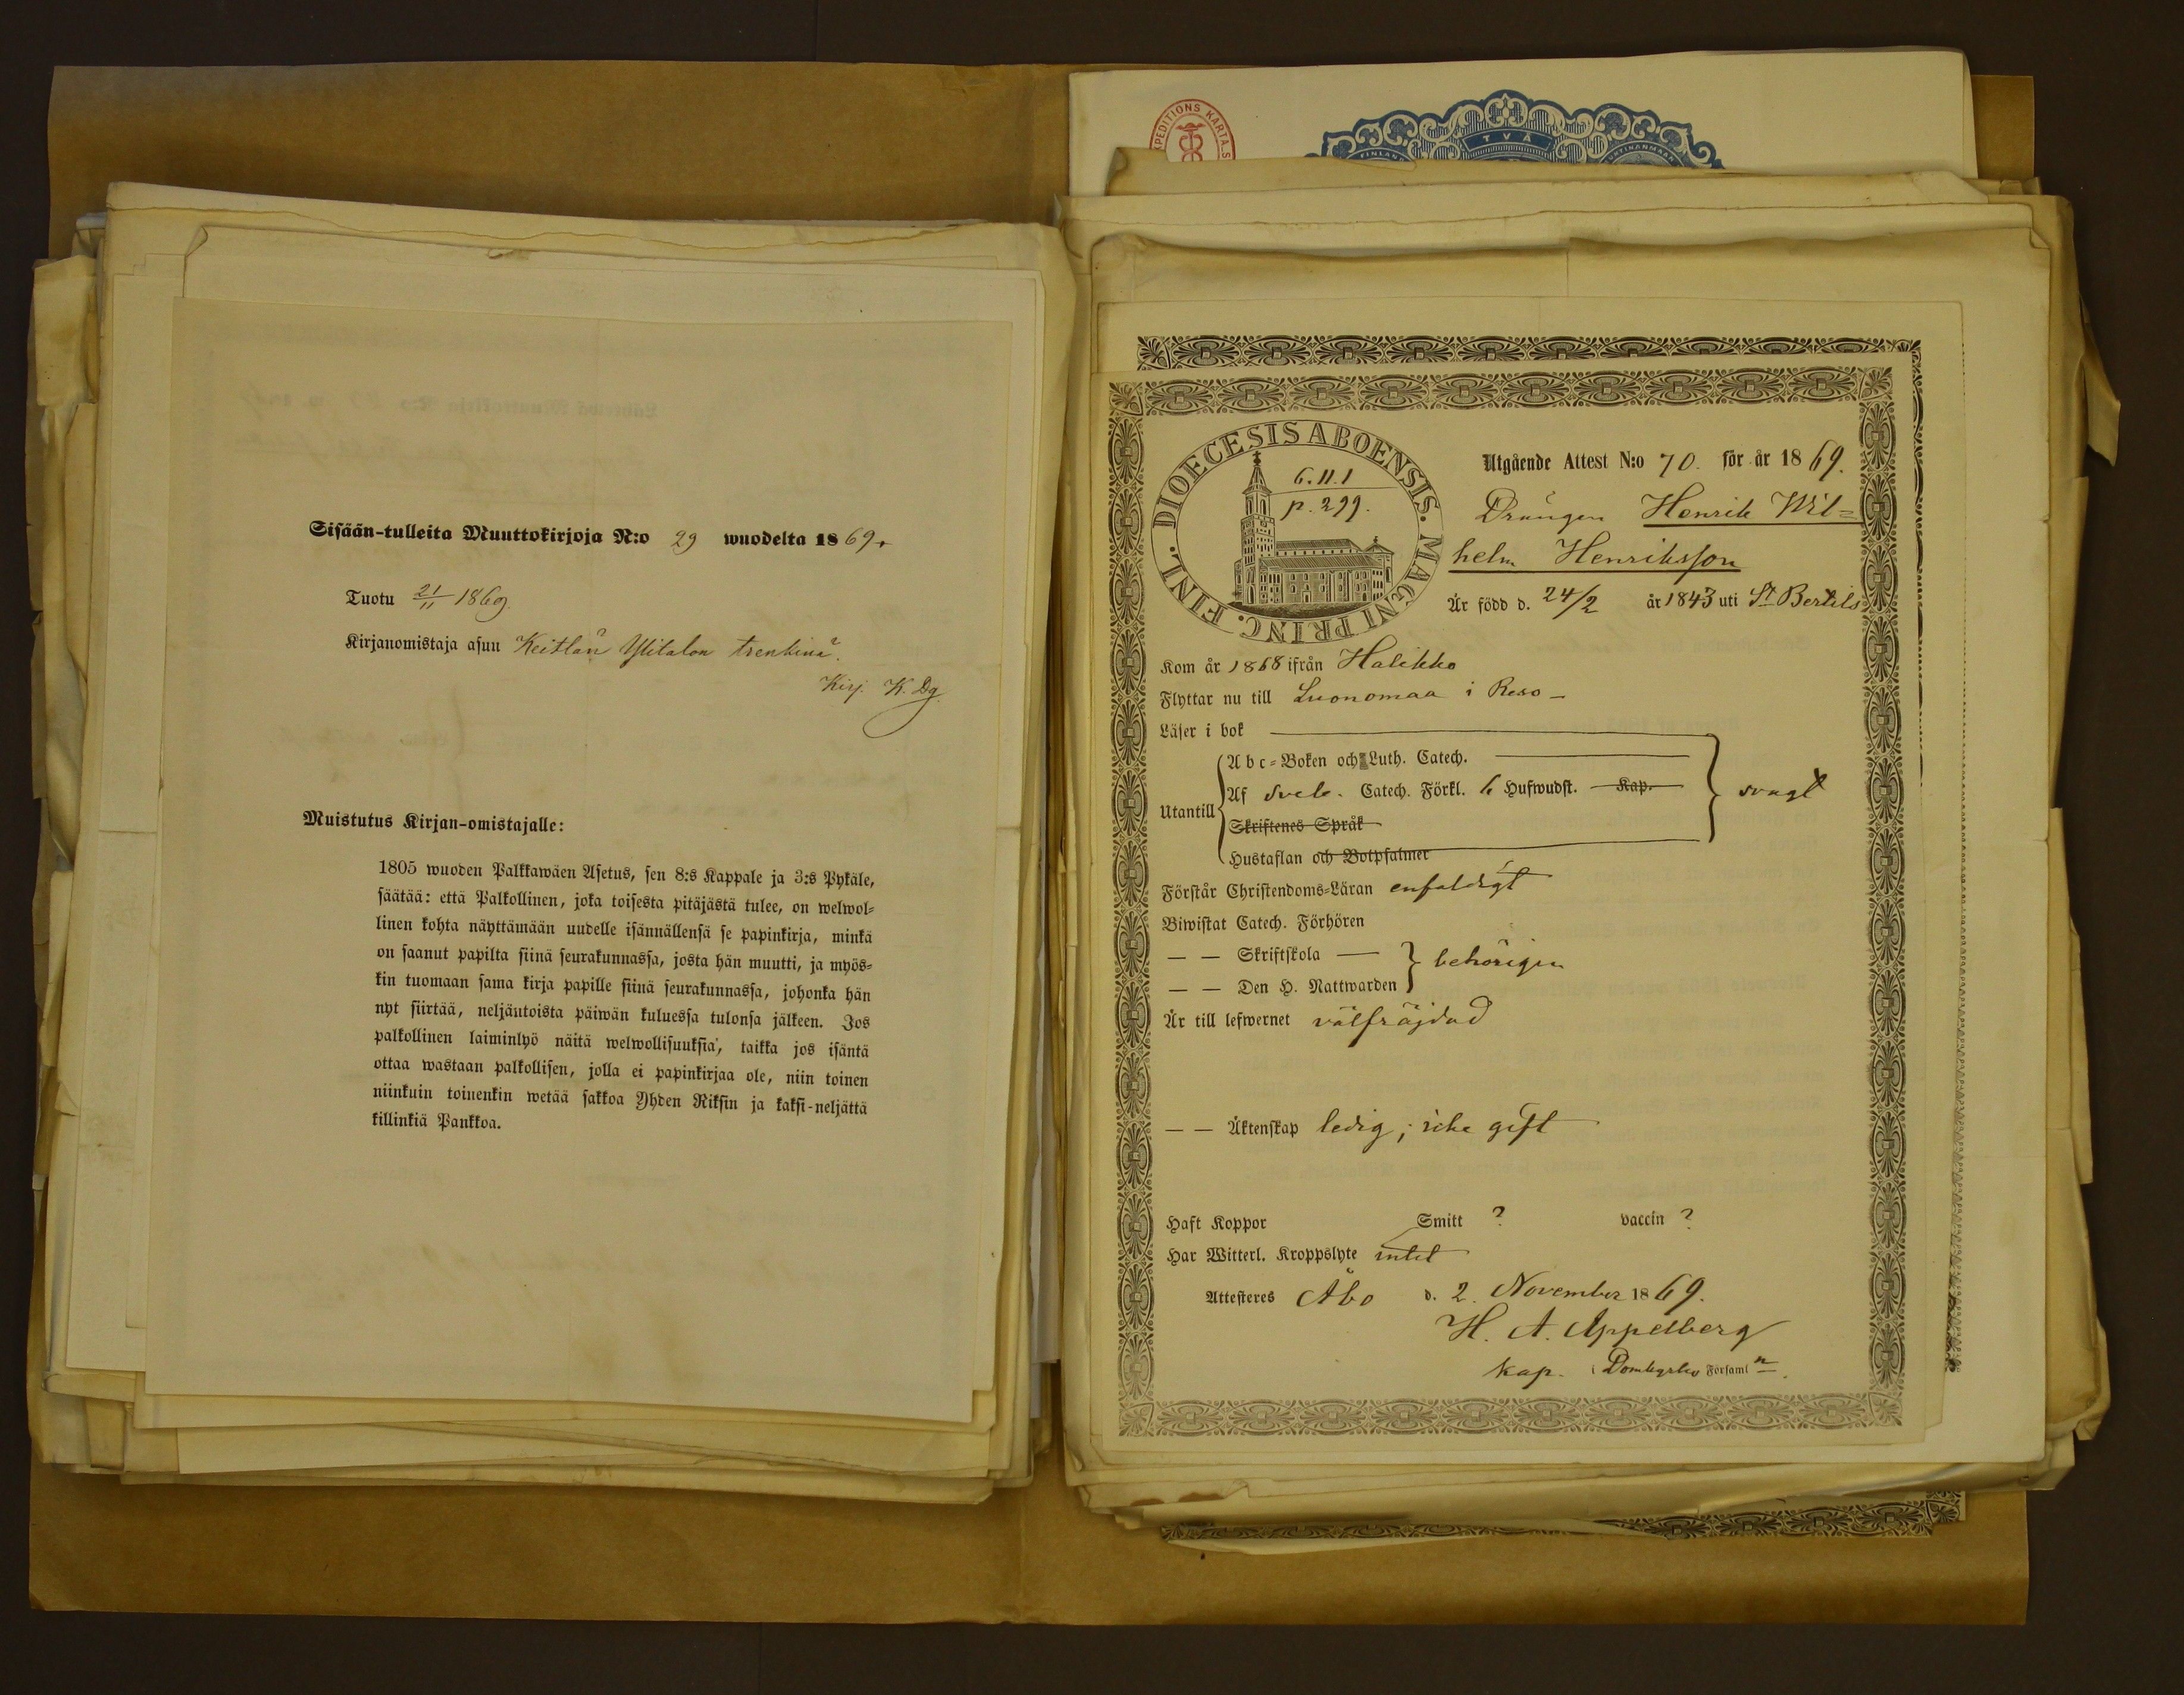 Sisään-tulleita Muuttokirjoja N:o 29 wuodelta 1869.
Tuotu 21/11 1869.
Kirjanomistaja asuu Keitlän Ylitalon trenkinä.
Kirj. K. Dg.
Muistutus Kirjan-omistajalle:
1805 wuoden Palkkawäen Asetus, sen 8:s Kappale ja 3:s Pykäle,
säätää: että Palkollinen, joka toisesta pitäjästä tulee, on welwol=
linen kohta näyttämään uudelle isännällensä se papinkirja, minkä
on saanut papilta siinä seurakunnassa, josta hän muutti, ja myös=
kin tuomaan sama kirja papille siinä seurakunnassa, johonka hän
nyt siirtää, neljäntoista päiwän kuluessa tulonsa jälkeen. Jos
palkollinen laiminlyö näitä welwollisuuksia, taikka jos isäntä
ottaa wastaan palkollisen, jolla ei papinkirjaa ole, niin toinen
niinkuin toinenkin wetää sakkoa Yhden Riksin ja kaksi-neljättä
killinkiä Pankkoa.
EXPEDITIONS KARTA. S
TVÅ
FINLAN
DIOECESIS ABOENSIS. MAGNI PRINC. FINL.
6.II.1
p. 299.
Utgående Attest N:o 70. för år 1869.
Drängen Henrik Wil=
helm Henriksson
Är född d. 24/2 år 1843 uti St Bertils
Kom år 1868 ifrån Halikko
Flyttar nu till Luonomaa i Reso -
Läser i bok
Utantill
Abc=Boken och Luth. Catech.
Af Sveb. Catech. Förkl. 6 Hufwudst. Kap.
svagt
Skriftenes Språk
Hustaflan och Botpsalmer
Förstår Christendoms=Läran enfaldigt
Biwistat Catech. Förhören
— — Skriftskola —
behörigen
— — Den H. Nattwarden
Är till lefwernet välfräjdad
— — Äktenskap ledig; icke gift
Haft Koppor Smitt ? vaccin ?
Har Witterl. Kroppslyte intet
Attesteres Åbo d. 2. November 1869.
H. A. Appelberg
kap. i Domkyrko Församln.